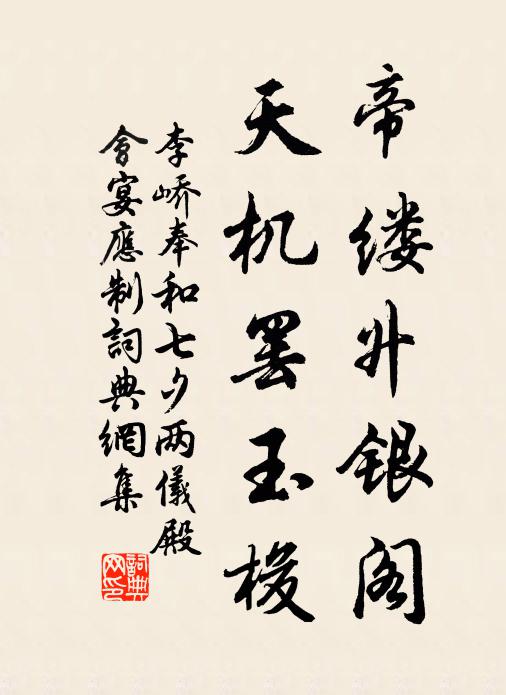 帝缕升银阁
天机罢玉梭
李峤奉和七夕两儀殿
會宴應制詞典網集
詞典
网印